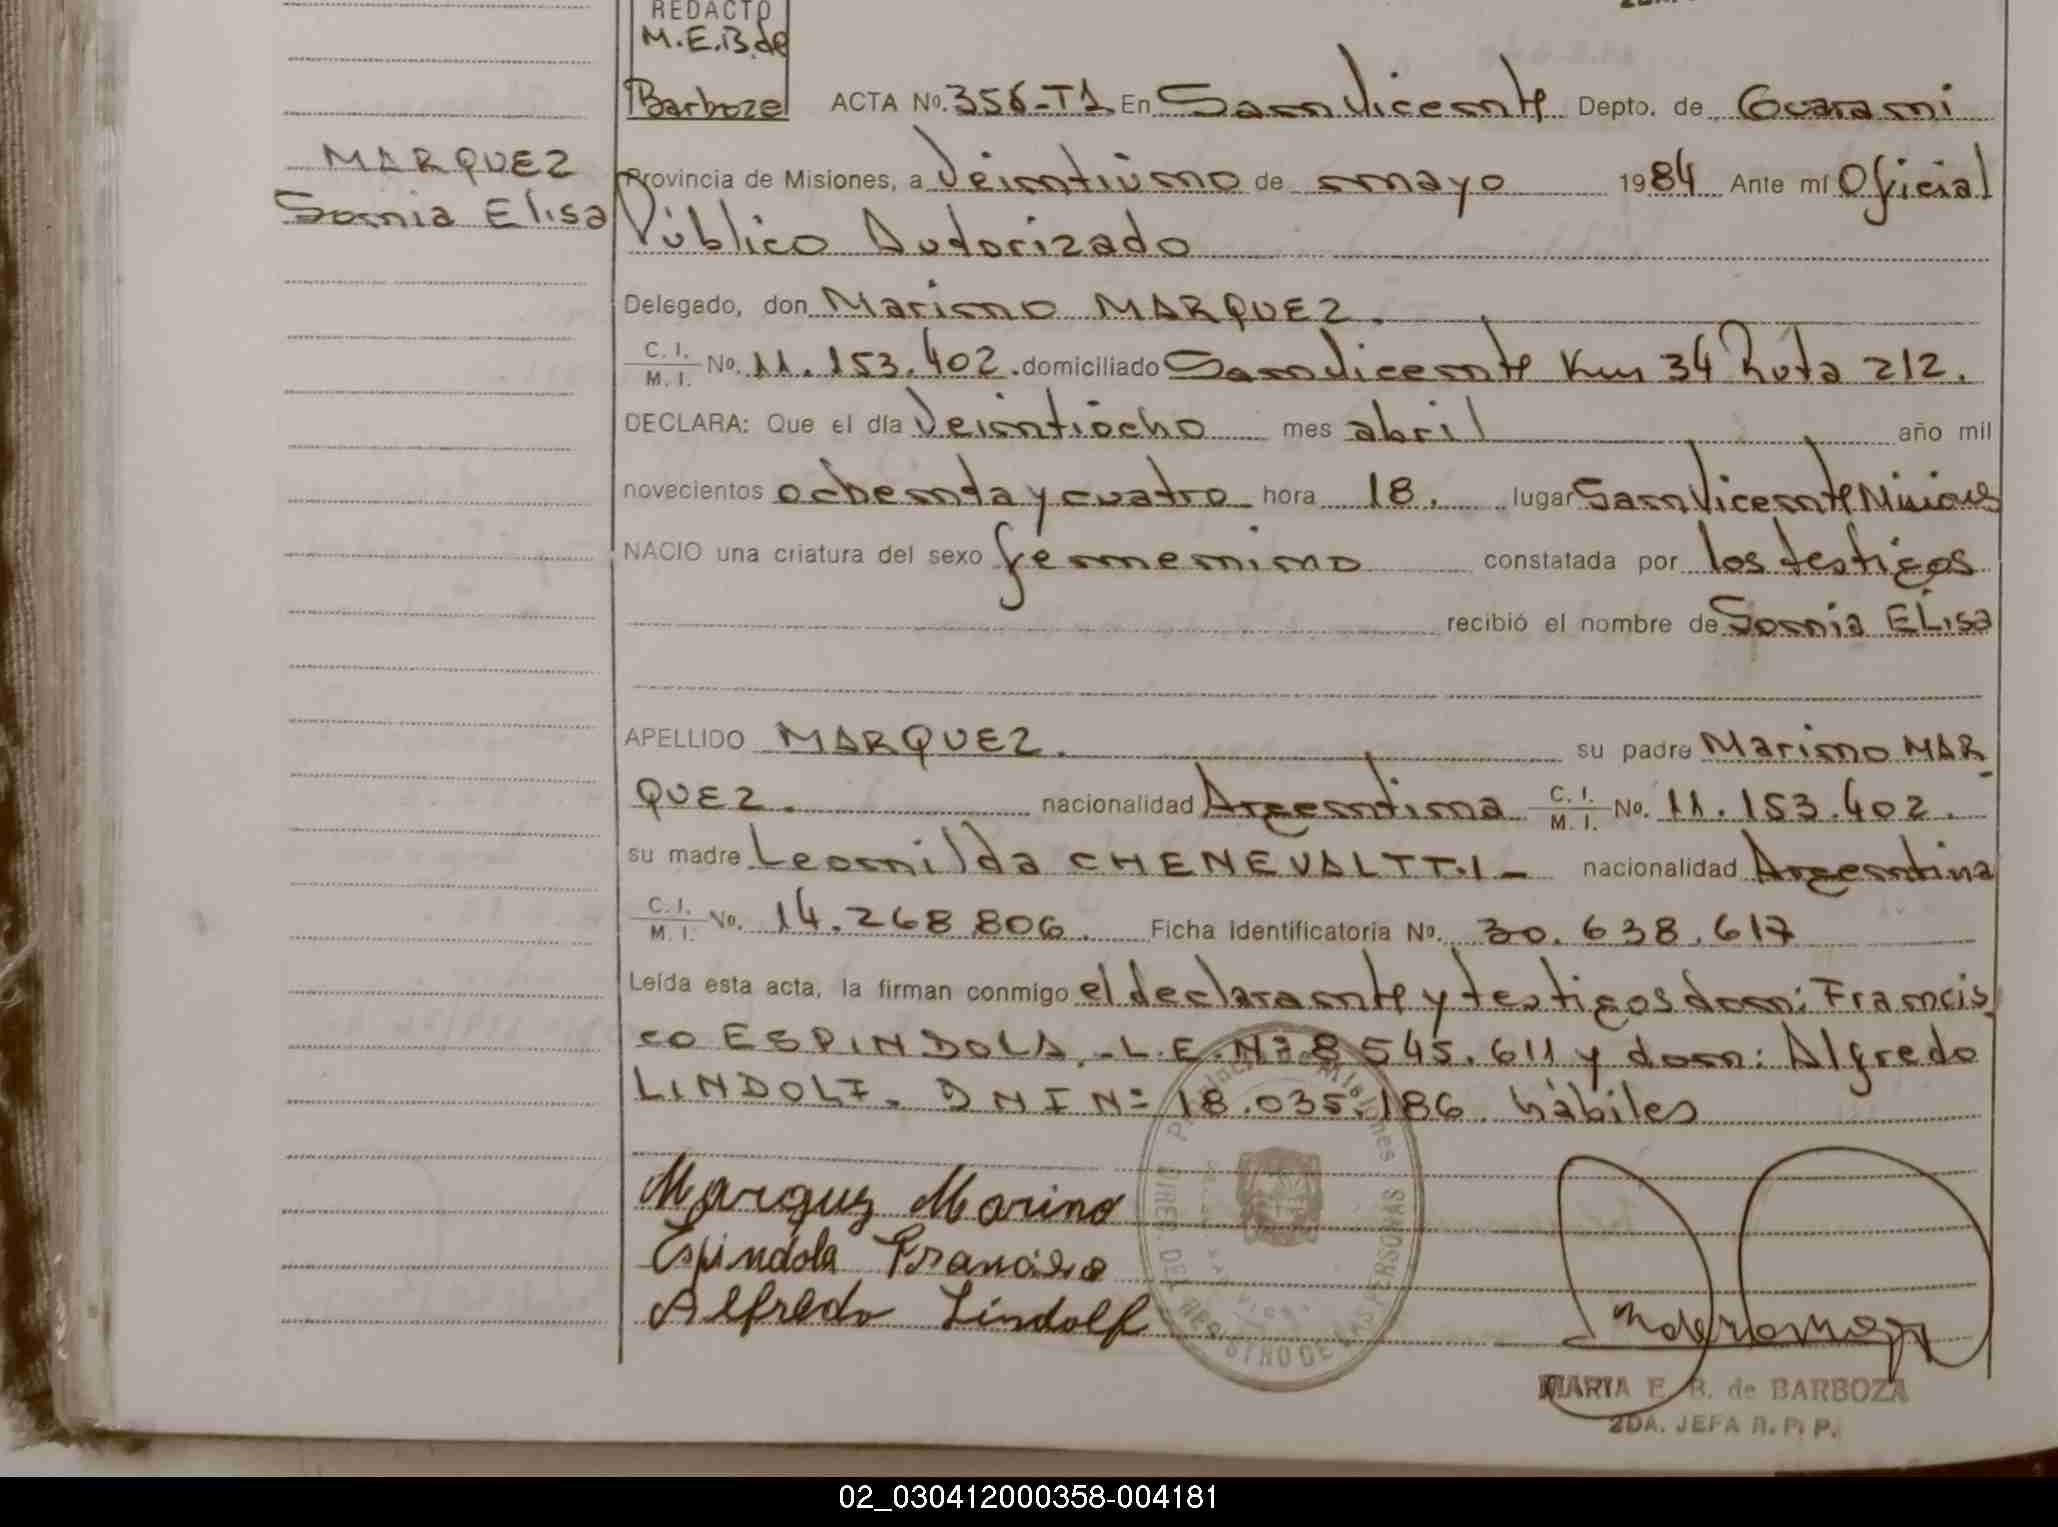 REDACTO
M.E.B. de
Barboza
ACTA No. 356-T1 En San Vicente Depto. de Guarani
MARQUEZ
Sonia Elisa
Provincia de Misiones, a Veintiuno de mayo 1984 Ante mí Oficial
Público Autorizado
Delegado, don Marino MARQUEZ.
C. I. / M. I. No. 11.153.402. domiciliado San Vicente Km 34 Ruta 212.
DECLARA: Que el día Veintiocho mes abril año mil
novecientos ochenta y cuatro hora 18. lugar San Vicente Misiones
NACIO una criatura del sexo femenino constatada por los testigos
recibió el nombre de Sonia Elisa
APELLIDO MARQUEZ. su padre Marino MAR
QUEZ. nacionalidad Argentina C. I. / M. I. No. 11.153.402.
su madre Leonilda CHENEVALTT.I - nacionalidad Argentina
C. I. / M. I. No. 14.268.806. Ficha identificatoria No. 30.638.617
Leída esta acta, la firman conmigo el declarante y testigos don: Francis
co ESPINDOLA.-L.E.Nº 8545.611 y don: Alfredo
LINDOLF. DNI Nº 18.035.186 hábiles
Marquez Marino
Espindola Francisco
Alfredo Lindolf
Provincia Misiones
DIREC. DEL REGISTRO DE LAS PERSONAS
MARIA E. B. de BARBOZA
2DA. JEFA R. P. P.
02_030412000358-004181